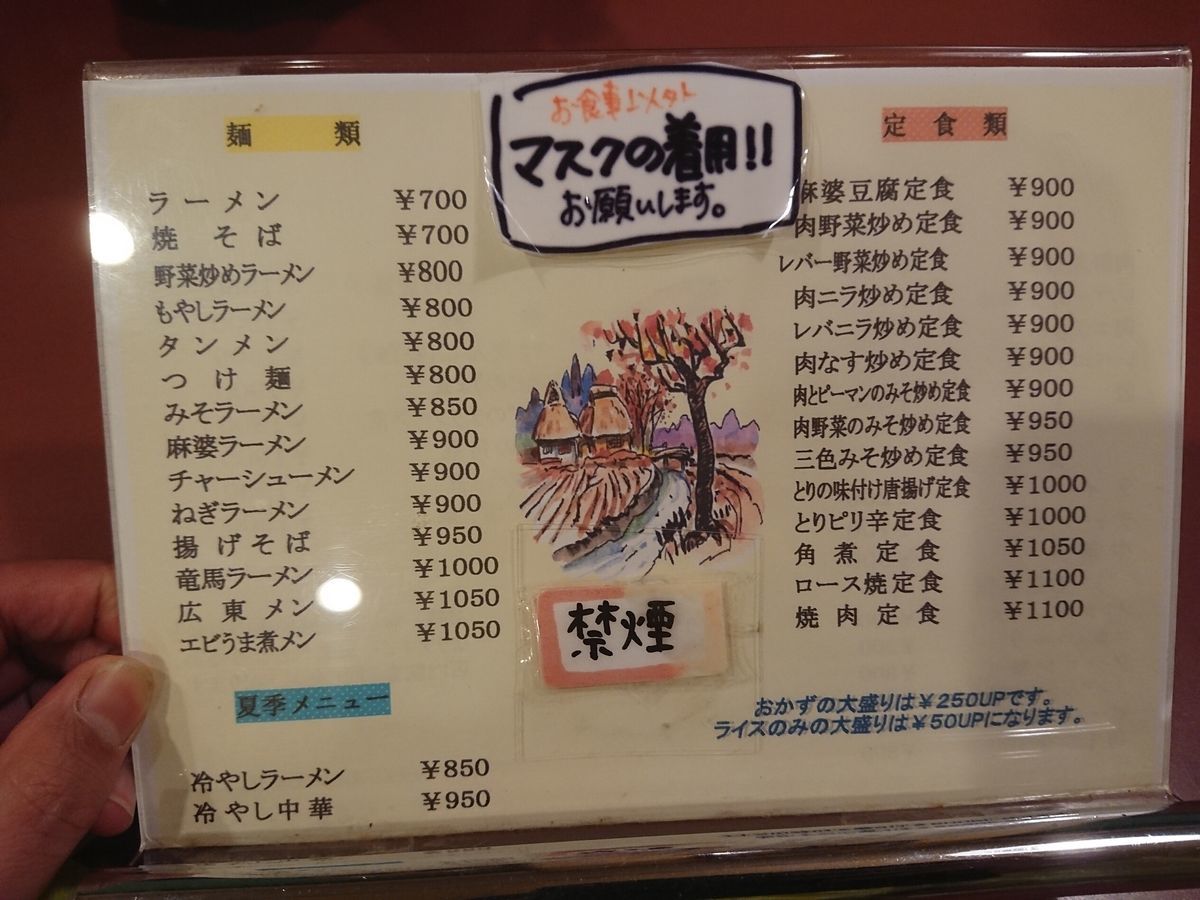 麺 類
ラーメン ¥700
焼そば ¥700
野菜炒めラーメン ¥800
もやしラーメン ¥800
タンメン ¥800
つけ麺 ¥800
みそラーメン ¥850
麻婆ラーメン ¥900
チャーシューメン ¥900
ねぎラーメン ¥900
揚げそば ¥950
竜馬ラーメン ¥1000
広東メン ¥1050
エビうま煮メン ¥1050
夏季メニュー
冷やしラーメン ¥850
冷やし中華 ¥950
お食事以外
マスクの着用!!
お願いします。
禁煙
定食類
麻婆豆腐定食 ¥900
肉野菜炒め定食 ¥900
レバー野菜炒め定食 ¥900
肉ニラ炒め定食 ¥900
レバニラ炒め定食 ¥900
肉なす炒め定食 ¥900
肉とピーマンのみそ炒め定食 ¥900
肉野菜のみそ炒め定食 ¥950
三色みそ炒め定食 ¥950
とりの味付け唐揚げ定食 ¥1000
とりピリ辛定食 ¥1000
角煮定食 ¥1050
ロース焼定食 ¥1100
焼肉定食 ¥1100
おかずの大盛りは¥250UPです。
ライスのみの大盛りは¥50UPになります。